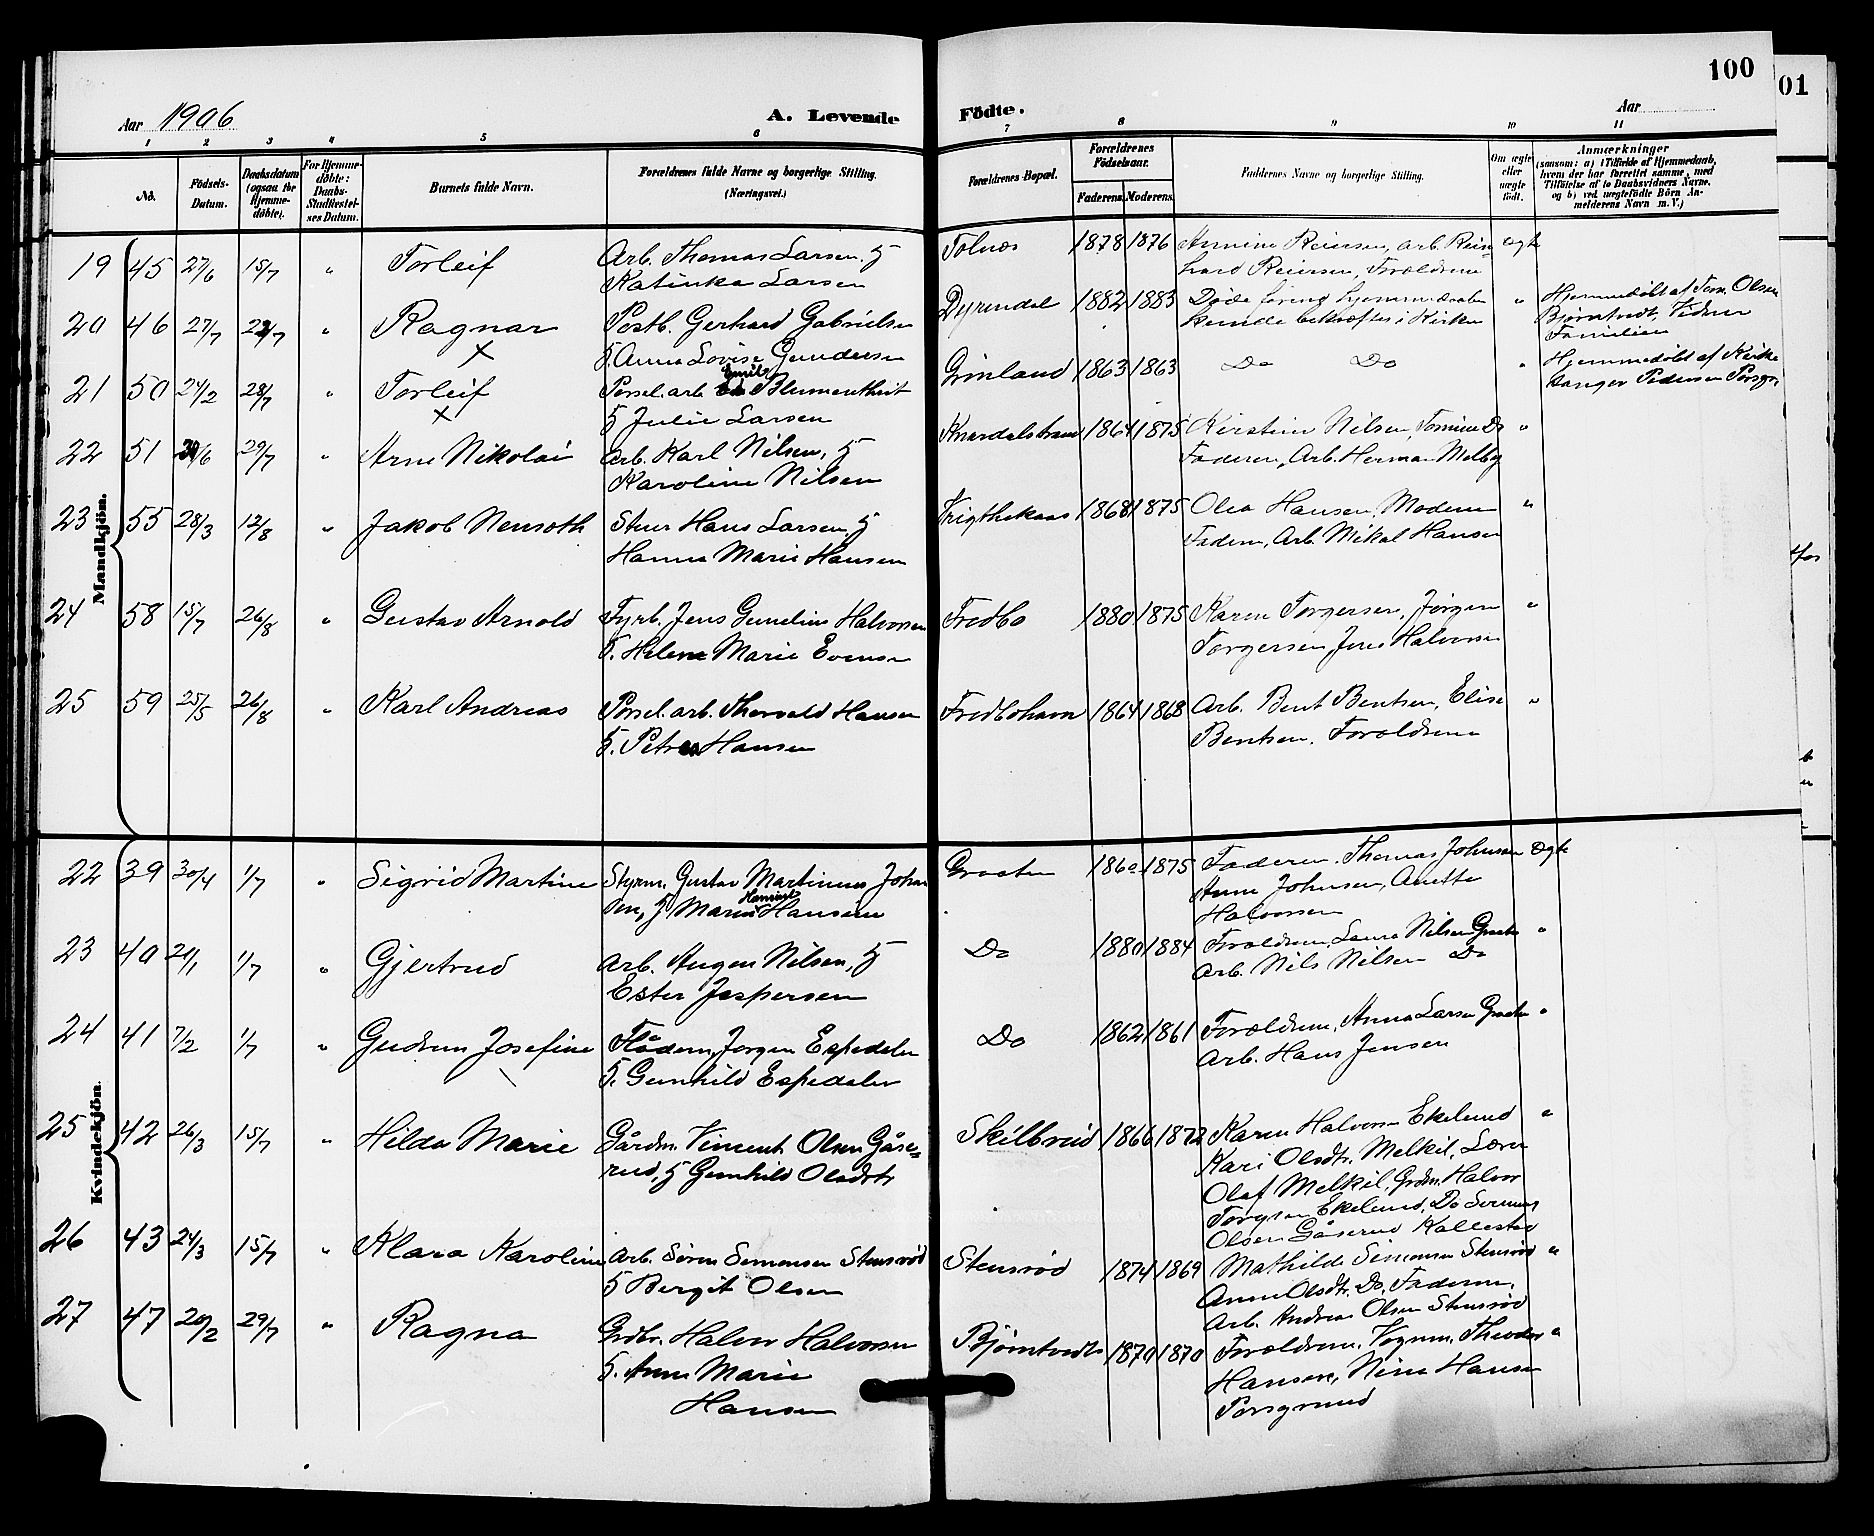 100
01
Aar 1906
A. Levende Födte.
Aar
1 2 3 4 5 6 7 8 9 10 11
No. Födsels-Datum. Daabsdatum (ogsaa for Hjemmedöbte). For Hjemmedöbte: Daabs-Stadfæstelses Datum. Barnets fulde Navn. Forældrenes fulde Navne og borgerlige Stilling. (Næringsvei.) Forældrenes Bopæl. Forældrenes Födselsaar. Faderens. Moderens. Faddernes Navne og borgerlige Stilling. Om ægte eller uægte födt. Anmærkninger (saasom: a) i Tilfælde af Hjemmedaab, hvem der har forrettet samme, med Tilföielse af to Daabsvidners Navne, og b) ved uægtefödte Börn Anmelderens Navn m. V.)
Mandkjön.
19 45 27/6 15/7 " Torleif Arb. Thomas Larsen, H Tolnæs 1878 1876 Annine Reiersen, arb. Rein- ægte
Katinka Larsen hard Reiersen, Forældrene
20 46 27/7 " Ragnar Postb. Gerhard Gabrielsen Dyrendal 1882 1883 Døde førend hjemmedaaben " Hjemmedøbt af Olsen
x H. Anna Lovise Gundersen kunde bekræftes i Kirken Bjørntvedt, Vidner Familien
21 50 24/2 28/7 " Torleif Porsel. arb. Emil Blumenthut Grinland 1863 1863 Do Do " Hjemmedøbt af Kirke
x H Julie Larsen sanger Pedersen Porsgr.
22 51 29/7 " Arne Nikolai Arb. Karl Nilsen, H Knardalstrand 1864 1875 Kirstine Nilsen, Tomine Do "
Karoline Nilsen Faderen, Arb. Herman Melby
23 55 28/3 12/8 " Jakob Hans Larsen, H 1868 1875 Olea Hansen, Moderen "
Hanna Marie Hansen Faderen, Arb. Mikal Hansen
24 58 15/7 26/8 " Gustav Arnold Fyrb. Jens Gunelius Halvorsen Fredbo 1880 1875 Karen Torgersen, Jörgen "
H. Helene Marie Evensen Torgersen, Jens Halvorsen
25 59 25/5 26/8 " Karl Andreas Porsel. arb. Thorvald Hansen Fredbohavn 1864 1868 Arb. Bent Bentsen, Elise "
H. Petrea Hansen Bentsen. Forældrene
Kvindekjön.
22 39 30/4 1/7 " Sigrid Martine Styrm. Gustav Martinius Johan Graaten 1860 1875 Faderen, Thomas Johnsen ægte
sen, H Maren Hansine Hansen Anne Johnsen, Anette
Halvorsen
23 40 20/1 1/7 " Gjertrud Arb. Augen Nilsen, H Do 1880 1884 Forældrene, Laura Nilsen Graaten "
Ester Jespersen Arb. Nils Nilsen Do
24 41 7/2 1/7 " Gudrun Josefine Jørgen Espedalen Do 1862 1861 Forældrene, Anna Larsen Graaten "
H. Gunhild Espedalen Arb. Hans Jensen
25 42 26/3 15/7 " Hilda Marie Gårdm. Vincent Olsen Gåse- Skilbred 1866 1872 Karen Halvorsen Ekelund "
rud, H Gunhild Olsdtr Kari Olsdtr. Melkil, Lærer
Olaf Melkil, Grdm. Halvor
Torgersen Ekelund, Do
Olsen Gåserud Kallestad
26 43 24/3 15/7 " Klara Karoline Arb. Søren Simonsen Stensrød Stensrød 1874 1869 Mathilde Simonsen Stensrød "
H Bergit Olsen Anne Olsdtr. Do, Faderen,
Arb. Andreas Olsen Stensrød
27 47 20/2 29/7 " Ragna Grdbr. Halvor Halvorsen Bjørntvedt 1870 1870 Forældrene, Vognm. Theodor "
H. Anne Marie Hansen, Nina Hansen
Hansen Porsgrund